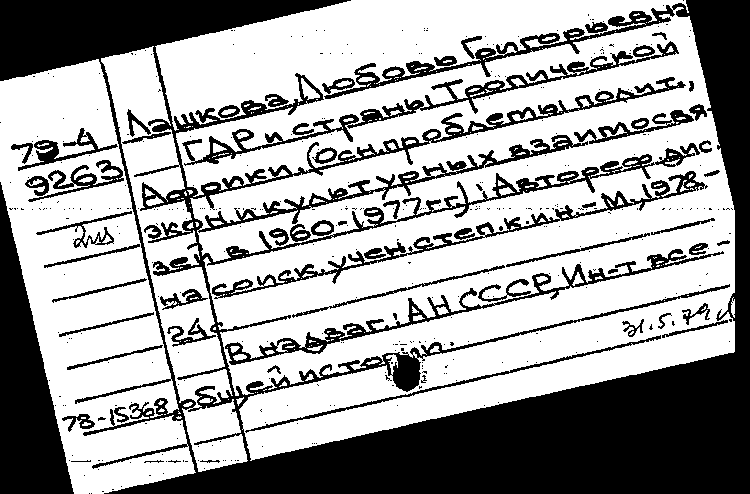 Лашкова, Любовь Григорьевна
79-4
9263
ГДР и страны Тропической
Африки. (Осн. проблемы полит.,
экон. и культурных взаимосвя-
зей в 1960-1977 гг.) : Автореф. дис.
на соиск. учен. степ. к. и. н. - М., 1978. -
24 с.
В надзаг.: АН СССР, Ин-т все-
общей истории.
31.5.79
78-15368